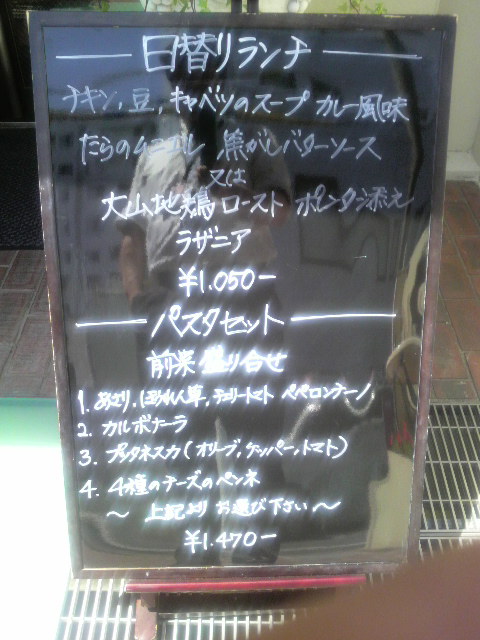 日替りランチ
チキン,豆,キャベツのスープ カレー風味
たらのムニエル 焦がしバターソース
又は
大山地鶏ロースト ポレンタ添え
ラザニア
¥1.050-
パスタセット
前菜盛り合せ
1. あさり,ほうれん草,チェリートマト ペペロンチーノ
2. カルボナーラ
3. プッタネスカ(オリーブ,ケッパー,トマト)
4. 4種のチーズのペンネ
～ 上記より お選び下さい ～
¥1.470-